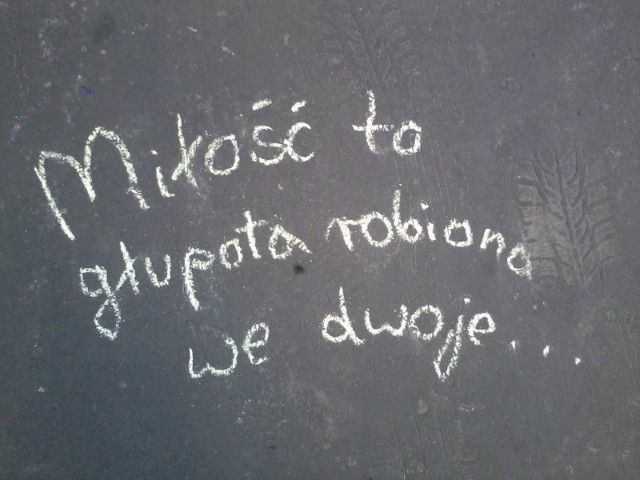 Miłość to
głupota robiona
we dwoje...